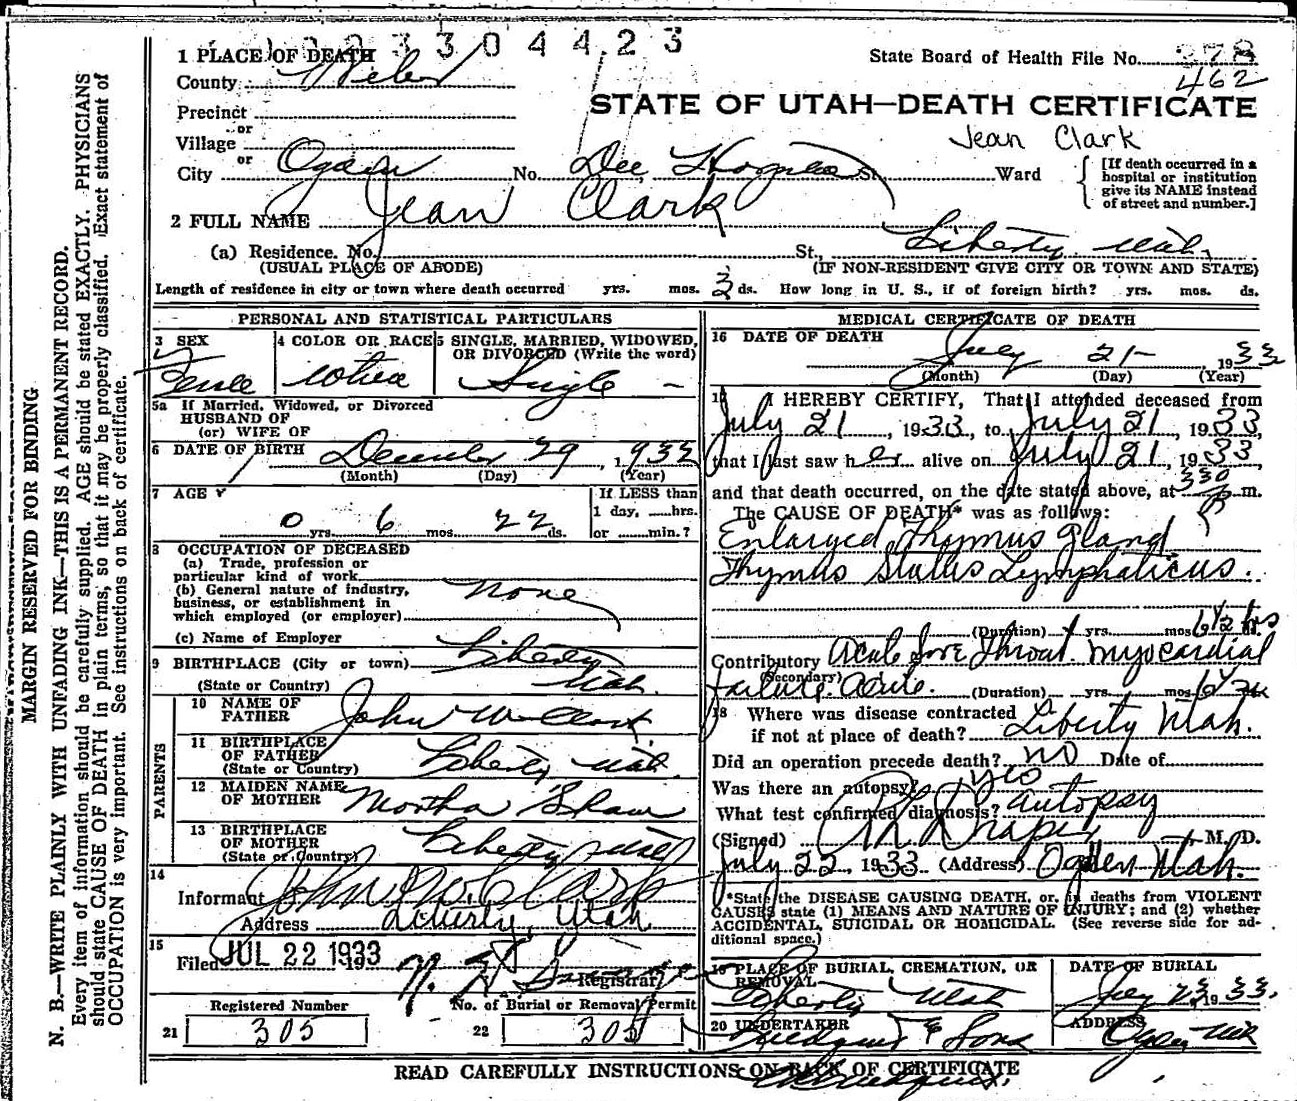 MARGIN RESERVED FOR BINDING
N. B.—WRITE PLAINLY WITH UNFADING INK—THIS IS A PERMANENT RECORD.
Every item of information should be carefully supplied. AGE should be stated EXACTLY. PHYSICIANS
should state CAUSE OF DEATH in plain terms, so that it may be properly classified. Exact statement of
OCCUPATION is very important. See instructions on back of certificate.
3304423
1 PLACE OF DEATH
State Board of Health File No. 278
462
County Weber
STATE OF UTAH—DEATH CERTIFICATE
Precinct
or
Village
Jean Clark
or
City Ogden No. Dee Hospital St. Ward
[If death occurred in a
hospital or institution
give its NAME instead
of street and number.]
2 FULL NAME Jean Clark
(a) Residence. No. St., Liberty, Utah,
(USUAL PLACE OF ABODE) (IF NON-RESIDENT GIVE CITY OR TOWN AND STATE)
Length of residence in city or town where death occurred yrs. mos. 3 ds. How long in U. S., if of foreign birth? yrs. mos. ds.
PERSONAL AND STATISTICAL PARTICULARS
3 SEX 4 COLOR OR RACE 5 SINGLE, MARRIED, WIDOWED,
OR DIVORCED (Write the word)
Female White Single
5a If Married, Widowed, or Divorced
HUSBAND OF
(or) WIFE OF
6 DATE OF BIRTH December 29, 1932
(Month) (Day) (Year)
7 AGE If LESS than
1 day, hrs.
0 yrs. 6 mos. 22 ds. or min.?
8 OCCUPATION OF DECEASED
(a) Trade, profession or
particular kind of work
(b) General nature of industry,
business, or establishment in
which employed (or employer) none
(c) Name of Employer
9 BIRTHPLACE (City or town) Liberty
(State or Country) Utah.
PARENTS
10 NAME OF
FATHER John W. Clark.
11 BIRTHPLACE
OF FATHER Liberty Utah.
(State or Country)
12 MAIDEN NAME
OF MOTHER Martha Shaw
13 BIRTHPLACE
OF MOTHER Liberty Utah
(State or Country)
14
Informant John W. Clark
Address Liberty, Utah
15
Filed JUL 22 1933 19
Registrar
Registered Number No. of Burial or Removal Permit
21 305 22 305
MEDICAL CERTIFICATE OF DEATH
16 DATE OF DEATH
July 21- 1933
(Month) (Day) (Year)
17 I HEREBY CERTIFY, That I attended deceased from
July 21, 1933, to July 21, 1933,
that I last saw her alive on July 21, 1933,
and that death occurred, on the date stated above, at 330 P m.
The CAUSE OF DEATH* was as follows:
Enlarged Thymus Gland
Thymus Status Lymphaticus.
(Duration) yrs. mos. 6 1/2 hrs
Contributory Acute Sore Throat. Myocardial
(Secondary)
failure. Acute. (Duration) yrs. mos.
18 Where was disease contracted
if not at place of death? Liberty Utah.
Did an operation precede death? NO Date of
Was there an autopsy? yes
What test confirmed diagnosis? autopsy
(Signed) Draper M. D.
July 22, 1933 (Address) Ogden Utah.
*State the DISEASE CAUSING DEATH, or, in deaths from VIOLENT
CAUSES state (1) MEANS AND NATURE OF INJURY; and (2) whether
ACCIDENTAL, SUICIDAL OR HOMICIDAL. (See reverse side for ad-
ditional space.)
19 PLACE OF BURIAL, CREMATION, OR
REMOVAL
DATE OF BURIAL
Liberty Utah July 23, 1933.
20 UNDERTAKER ADDRESS
& Sons Ogden Utah
READ CAREFULLY INSTRUCTIONS ON BACK OF CERTIFICATE